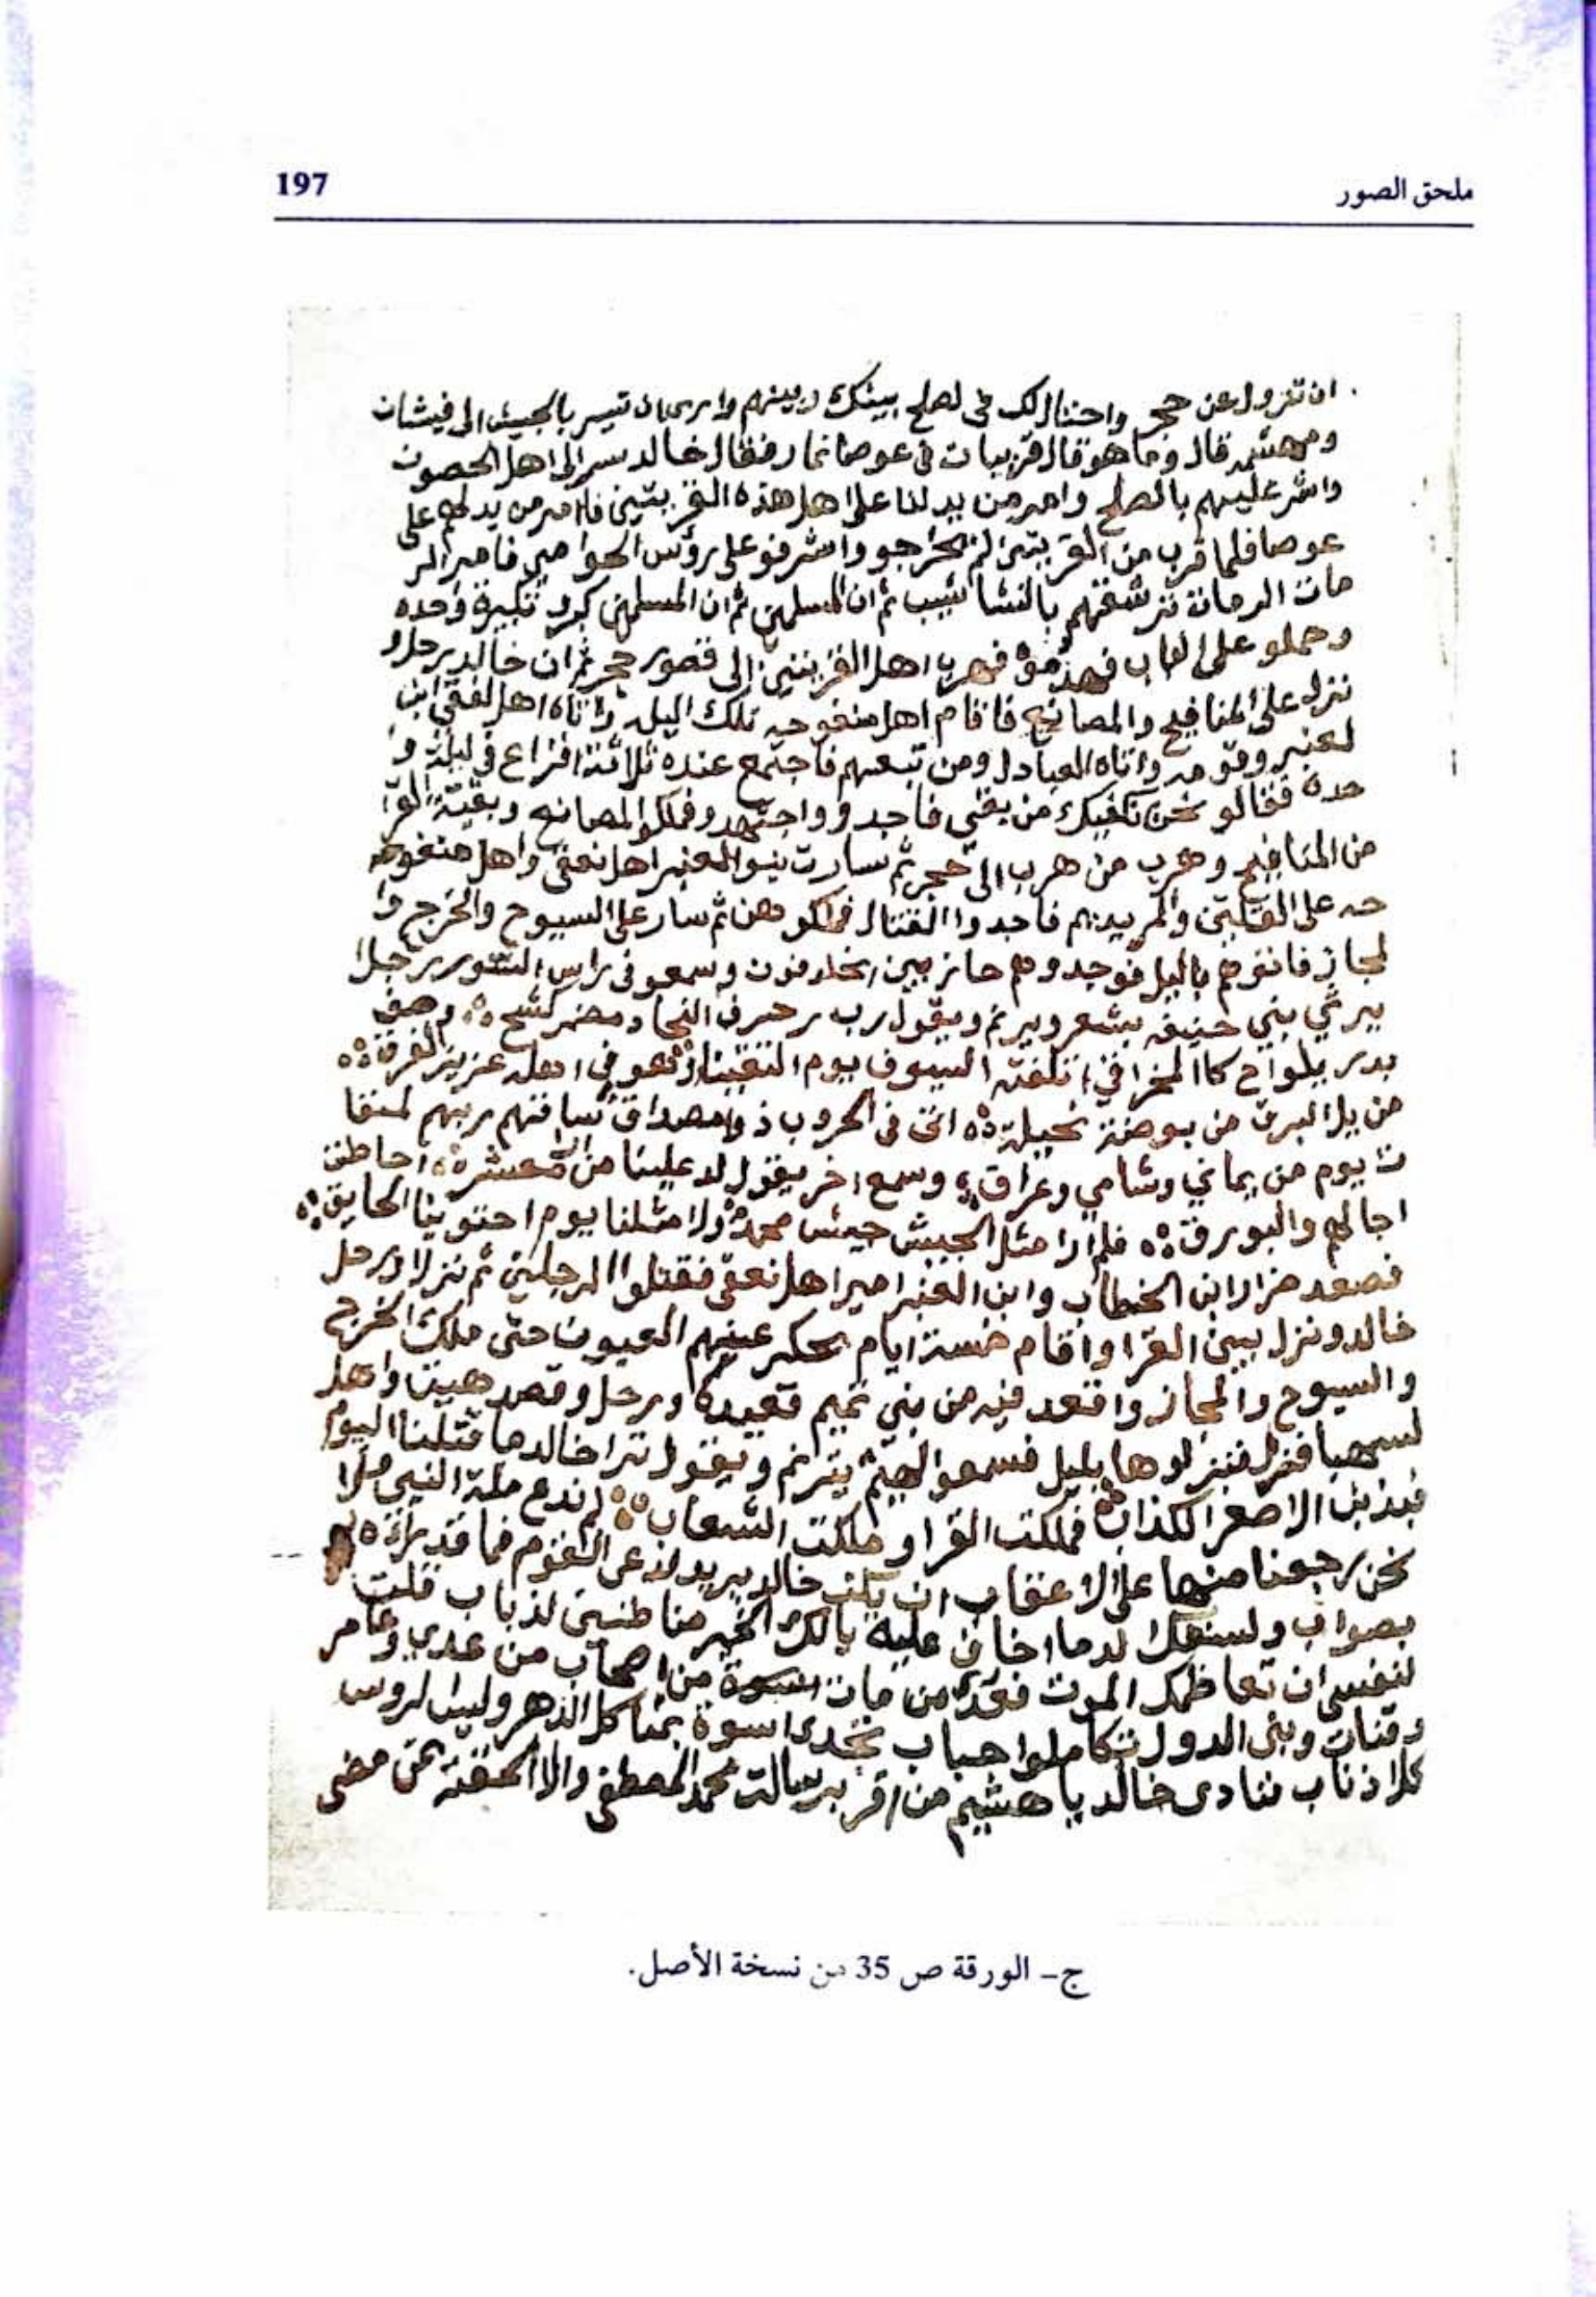 ملحق الصور
197
ان تزول عن حجر واحتال لك في لصلح بينك وبينهم وا ان تسير بالجيش الى فيشان
ومهشمر قال وما هو قال قريبات في عوصا نمار فقال خالد سر الى اهل الحصون
واشر عليهم بالصلح وامر من يدلنا على اهل هذه القريتين فامر من يدلهم على
عوصا فلما قرب من القريتين الخراجو واشرفو على رؤس الحوامي فامر الر
مات الرمات ترشقهم بالنشا شيب ثم ان المسلمين ثم ان المسلمين كبرو تكبيرة واحده
وحملو على الباب فهزموه فهرب اهل القريتين الى قصور حجر ثم ان خالد رحل و
نزل على المنافيح والمصانع فاقام اهل منفوحه تلك اليله واتاه اهل لفقي ابن
لعنبر وقومه واتاه العبادل ومن تبعهم فاجتمع عنده ثلاثة افزاع في ليلة وا
حده فقالو نحن نكفيك من بقي فاجدو واجتهدو فملكوا المصانع وبقية القرا
من المنافيح وهرب من هرب الى حجر ثم سارت بنو العنبر اهل نعق واهل منفوحه
حه على القلتين والمريديم فاجدوا القتال فملكوهن ثم سار على السيوح والخرج وا
لمجاز فانفرهم باليل فوجدوهم حايز بين الخلافون وسمعو في راس السور رجلا
يرثي بني حنيفه بشعر ويرنم ويقول رب رحرف النجاد مضمر كشح ؞ وصف
بدر يلواح كالمخراق ؞ تلفته السيوف يوم التقينا ؞ فهو في اهله عزيز الفرق ؞
من يرا البرق من بوصنة نجيلة ؞ اتق في الحروب ذو مصداق ساقتهم ربهم لمنقا
ت يوم من يماني وشامي وعراق ؞ وسمع اخر يقول لد علينا من معشر ؞ احاطت
اجالهم والبورق ؞ فلم ارا مثل الجيش جيش محمد ؞ ولا مثلنا يوم احتوينا الحايق ؞
فصعد ضرار ابن الخطاب وابن العنبر امير اهل نعق فقتلوا الرجلين ثم نزلا ورحل
خالد ونزل بين القرا واقام خمسة ايام يحكر عنهم العيون حتى ملك الخرج
والسيوح والمجاز واقعد فيه من بني تميم قعيده ورحل وقصد هيت واهل
لسهبا فنزل فنزلوها بليل فسمعوا الهيثم يترنم ويقول ترا خالد ما قتلنا اليوم
فبذنب الاصعر الكذاب ؞ فملكت القرا وملكت الشعاب ؞ لم ندع ملة النبي ولا
نحن رجعنا منها على الاعقاب ان يكن خالد يريد لذعى القوم فما قد يراه
بصواب ولسنعك لدما اخاف عليه يالك الخير منا طنبتى لذباب قلت
لنفسي ان تعاظمك الموت فقد من مات اسوة من اصحاب من عدي وعامر
وقنات وبني الدول تكاملوا حباب تجدى اسوة بمنا كل الدهر وليس لروس
كلا ذناب فنادى خالد يا هشيم من اقر برسالت محمد المصطفى والا الحقته بمن مضى
ج- الورقة ص 35 من نسخة الأصل.